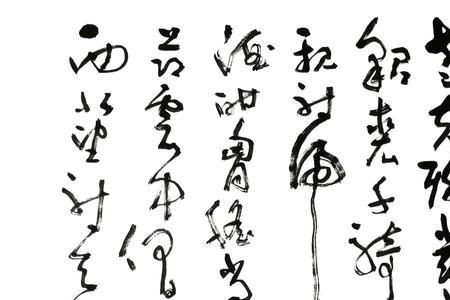 老夫聊
貂裘千騎
親射虎
酒酣胸膽尚
節雲中何
西北望射天